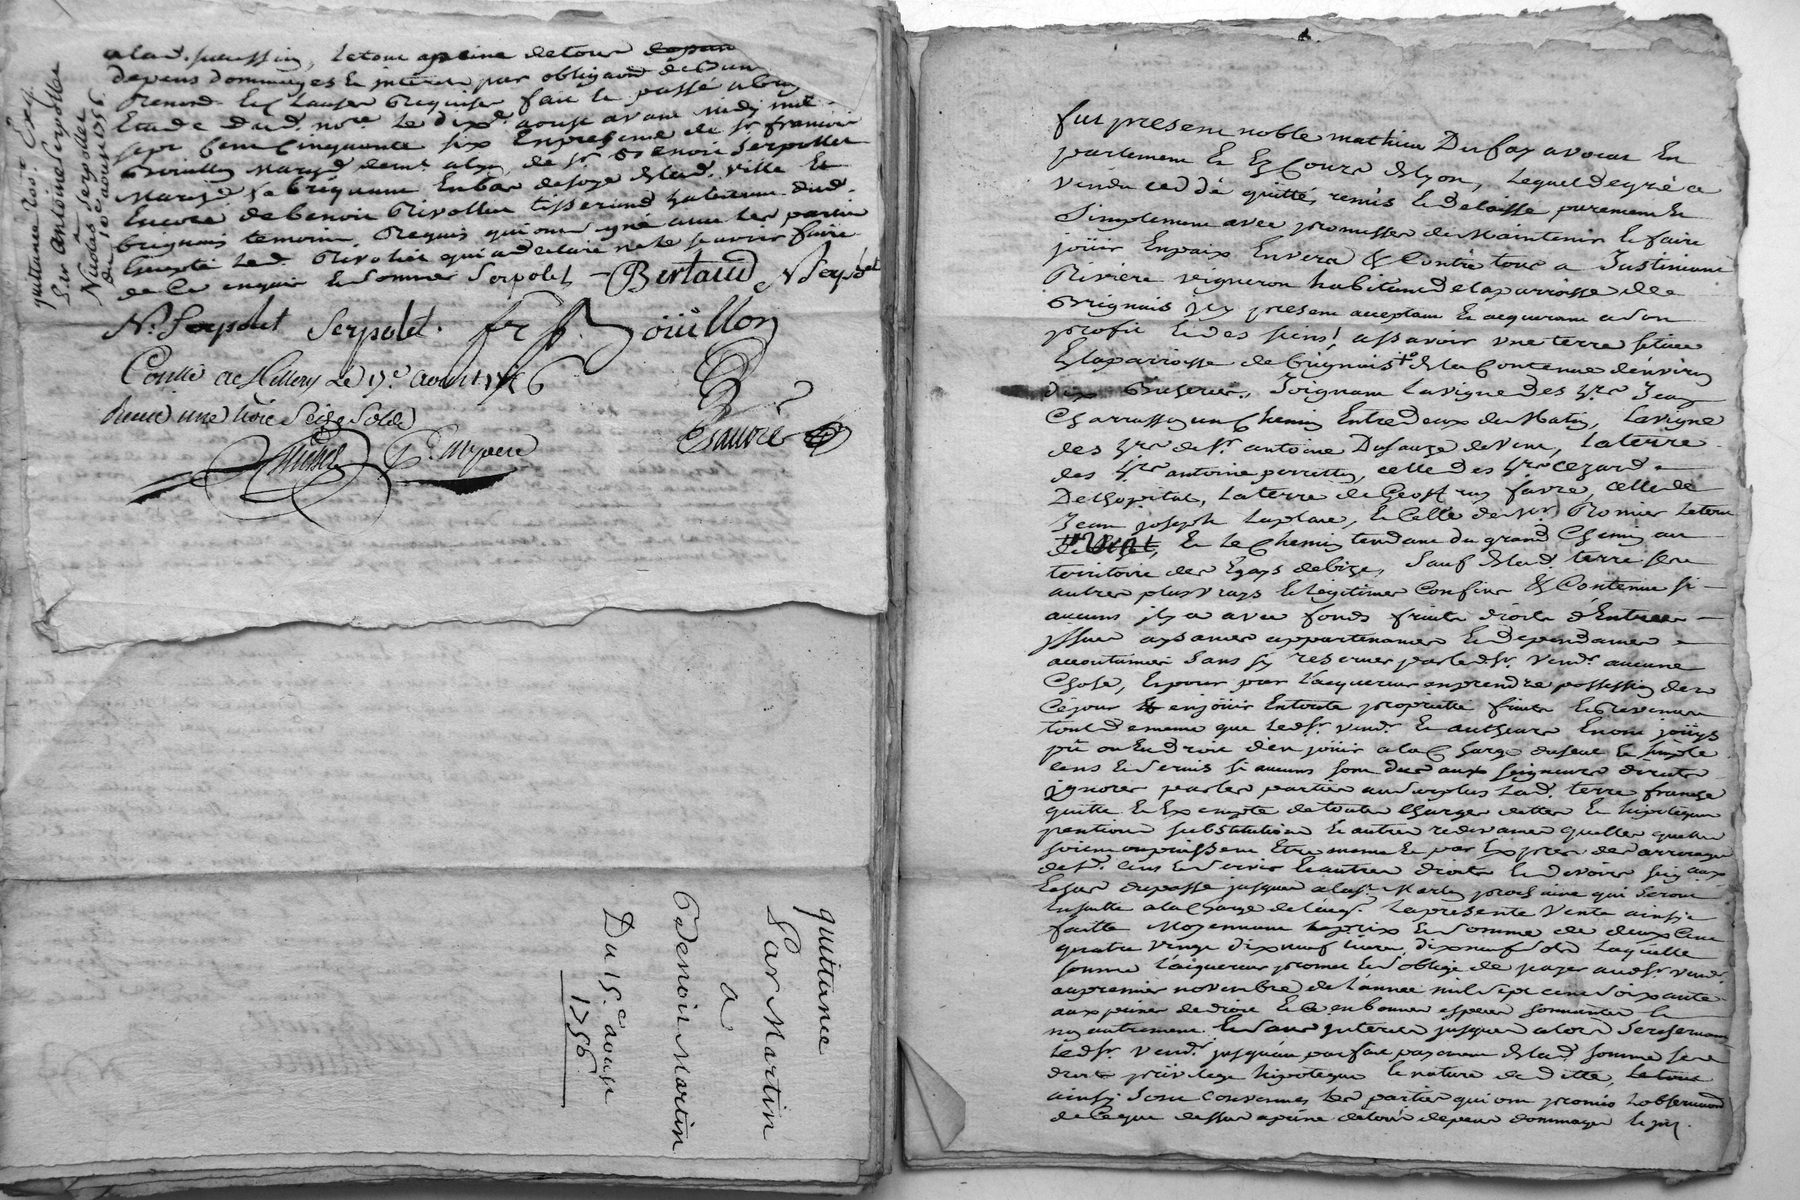 alad. succession, le tout apeine de tous
depens dommages et interets par obligaons
renond. et clauses requises fait et passé a
Etude dud. nore. le dixe. aoust avant midy mil
sept cent cinquante six En presence de sr. francois
Boüillon march. de sr. Benoit Serpollet
March. fabriquant En bas de soye de lad. ville et
Encore de benoit Rivollier tisserand habitant dud.
brignais temoins Requis qui ont signé avec les parties
Excepté led. Rivolier qui a declaré ne le scavoir faire
de ce enquis et sommé Serpolet Bertaud N Serpolet
N. Serpolet Serpolet. fr Boüillon
Conllé a Millery le 17e aout 1756
Receu une livre seize solds
quittance
Par Antoine Serpollet
a
Nicolas Serpollet
du 10e aoust 1756.
quittance
Par Martin
a
Benoit Martin
Du 15e. aoust
1756.
fut present noble mathieu Dufay avocat En
parlement et Ez Cours de Lyon, Lequel de gré a
vendu ceddé quitté, remis et delaissé purement et
Simplement avec promesses de Maintenir et faire
joüir En paix Envers et Contre tous a Justinien
Riviere vigneron habitant de la parroisse de
Brignais icy present acceptant et acquerant a son
profit et des siens! assavoir une terre située
En la parroisse de brignais de la Contenue d'environ
dix Joignant La vigne des hrs. Jean
Charrassin un Chemin Entre deux de Matin, La vigne
des hrs. de sr. antoine Dufauge de vent, La terre
des hrs. antoine perretton, celle des hrs. Cezard
Delhopital, La terre de Geoffray favre, celle de
Jean joseph Laplace, et Celle de Mr. Romier
et le Chemin tendant du grand Chemin au
territoire des de bize, Sauf de lad. terre ses
autres plus vrays et legitimes Confins et Contenue si
aucuns il y a avec fonds fruits droits d'Entrées
yssues aysances appartenances et dependances
accoutumées Sans sy reserver par led. sr. vendr. aucune
Chose, Et pour par l'acquereur en prendre possession des
Ce jour et en joüir En toute proprieté fruits et revenus
tout de meme que led. sr. vendr. et autheurs En ont joüys
pû ou eu droit d'en joüir a la Charge du seul et simple
cens et servis si aucuns sont dus aux seigneurs directs
ignorés par les parties au surplus Lad. terre franche
quitte et Exempte de toutes Charges dettes et hipoteques
pentions substitutions et autres redevances quelles quelles
soient ou puissent Etre meme par Exprès des arrerages
desd. cens et servis et autres droits et devoirs seigaux
du passé jusques a la st. Martin prochaine qui seront
Ensuitte a la Charge de l'acqr. La presente vente ainsy
faitte Moyennant le prix et somme de deux Cent
quatre vingt dix neuf livres dix neuf sols Laquelle
somme l'acquereur promet et s'oblige de payer aud. sr. vendr.
au premier novembre de l'année mil sept cent soixante
aux peines de droit et Ce en bonnes especes sonnantes et
non autrement et sans interets jusques alors se reservant
led. sr. vendr. jusqu'au parfait payement de lad. somme ses
droits privilege hipoteque et nature de dette, Le tout
ainsy Sont Convenues les parties qui ont promis Lobservation
de Ce que dessus a peine de tous depens dommages et